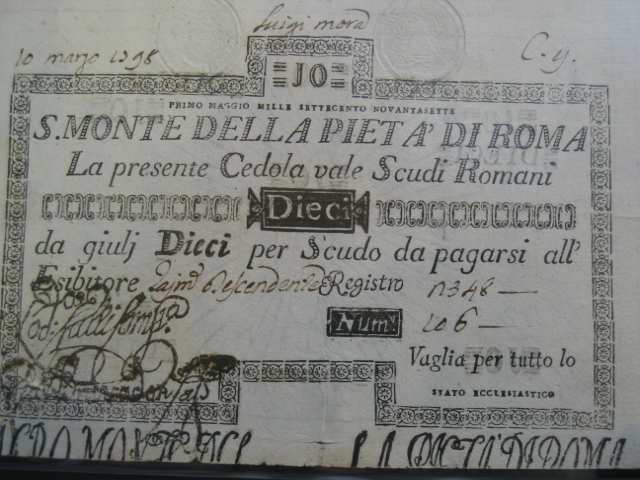 luigi mora
10 marzo 1798
C. y.
JO
PRIMO MAGGIO MILLE SETTECENTO NOVANTASETTE
S. MONTE DELLA PIETA' DI ROMA
La presente Cedola vale Scudi Romani
Dieci
da giulj Dieci per Scudo da pagarsi all'
Esibitore Registro n 348
Num. 106
Vaglia per tutto lo
STATO ECCLESIASTICO